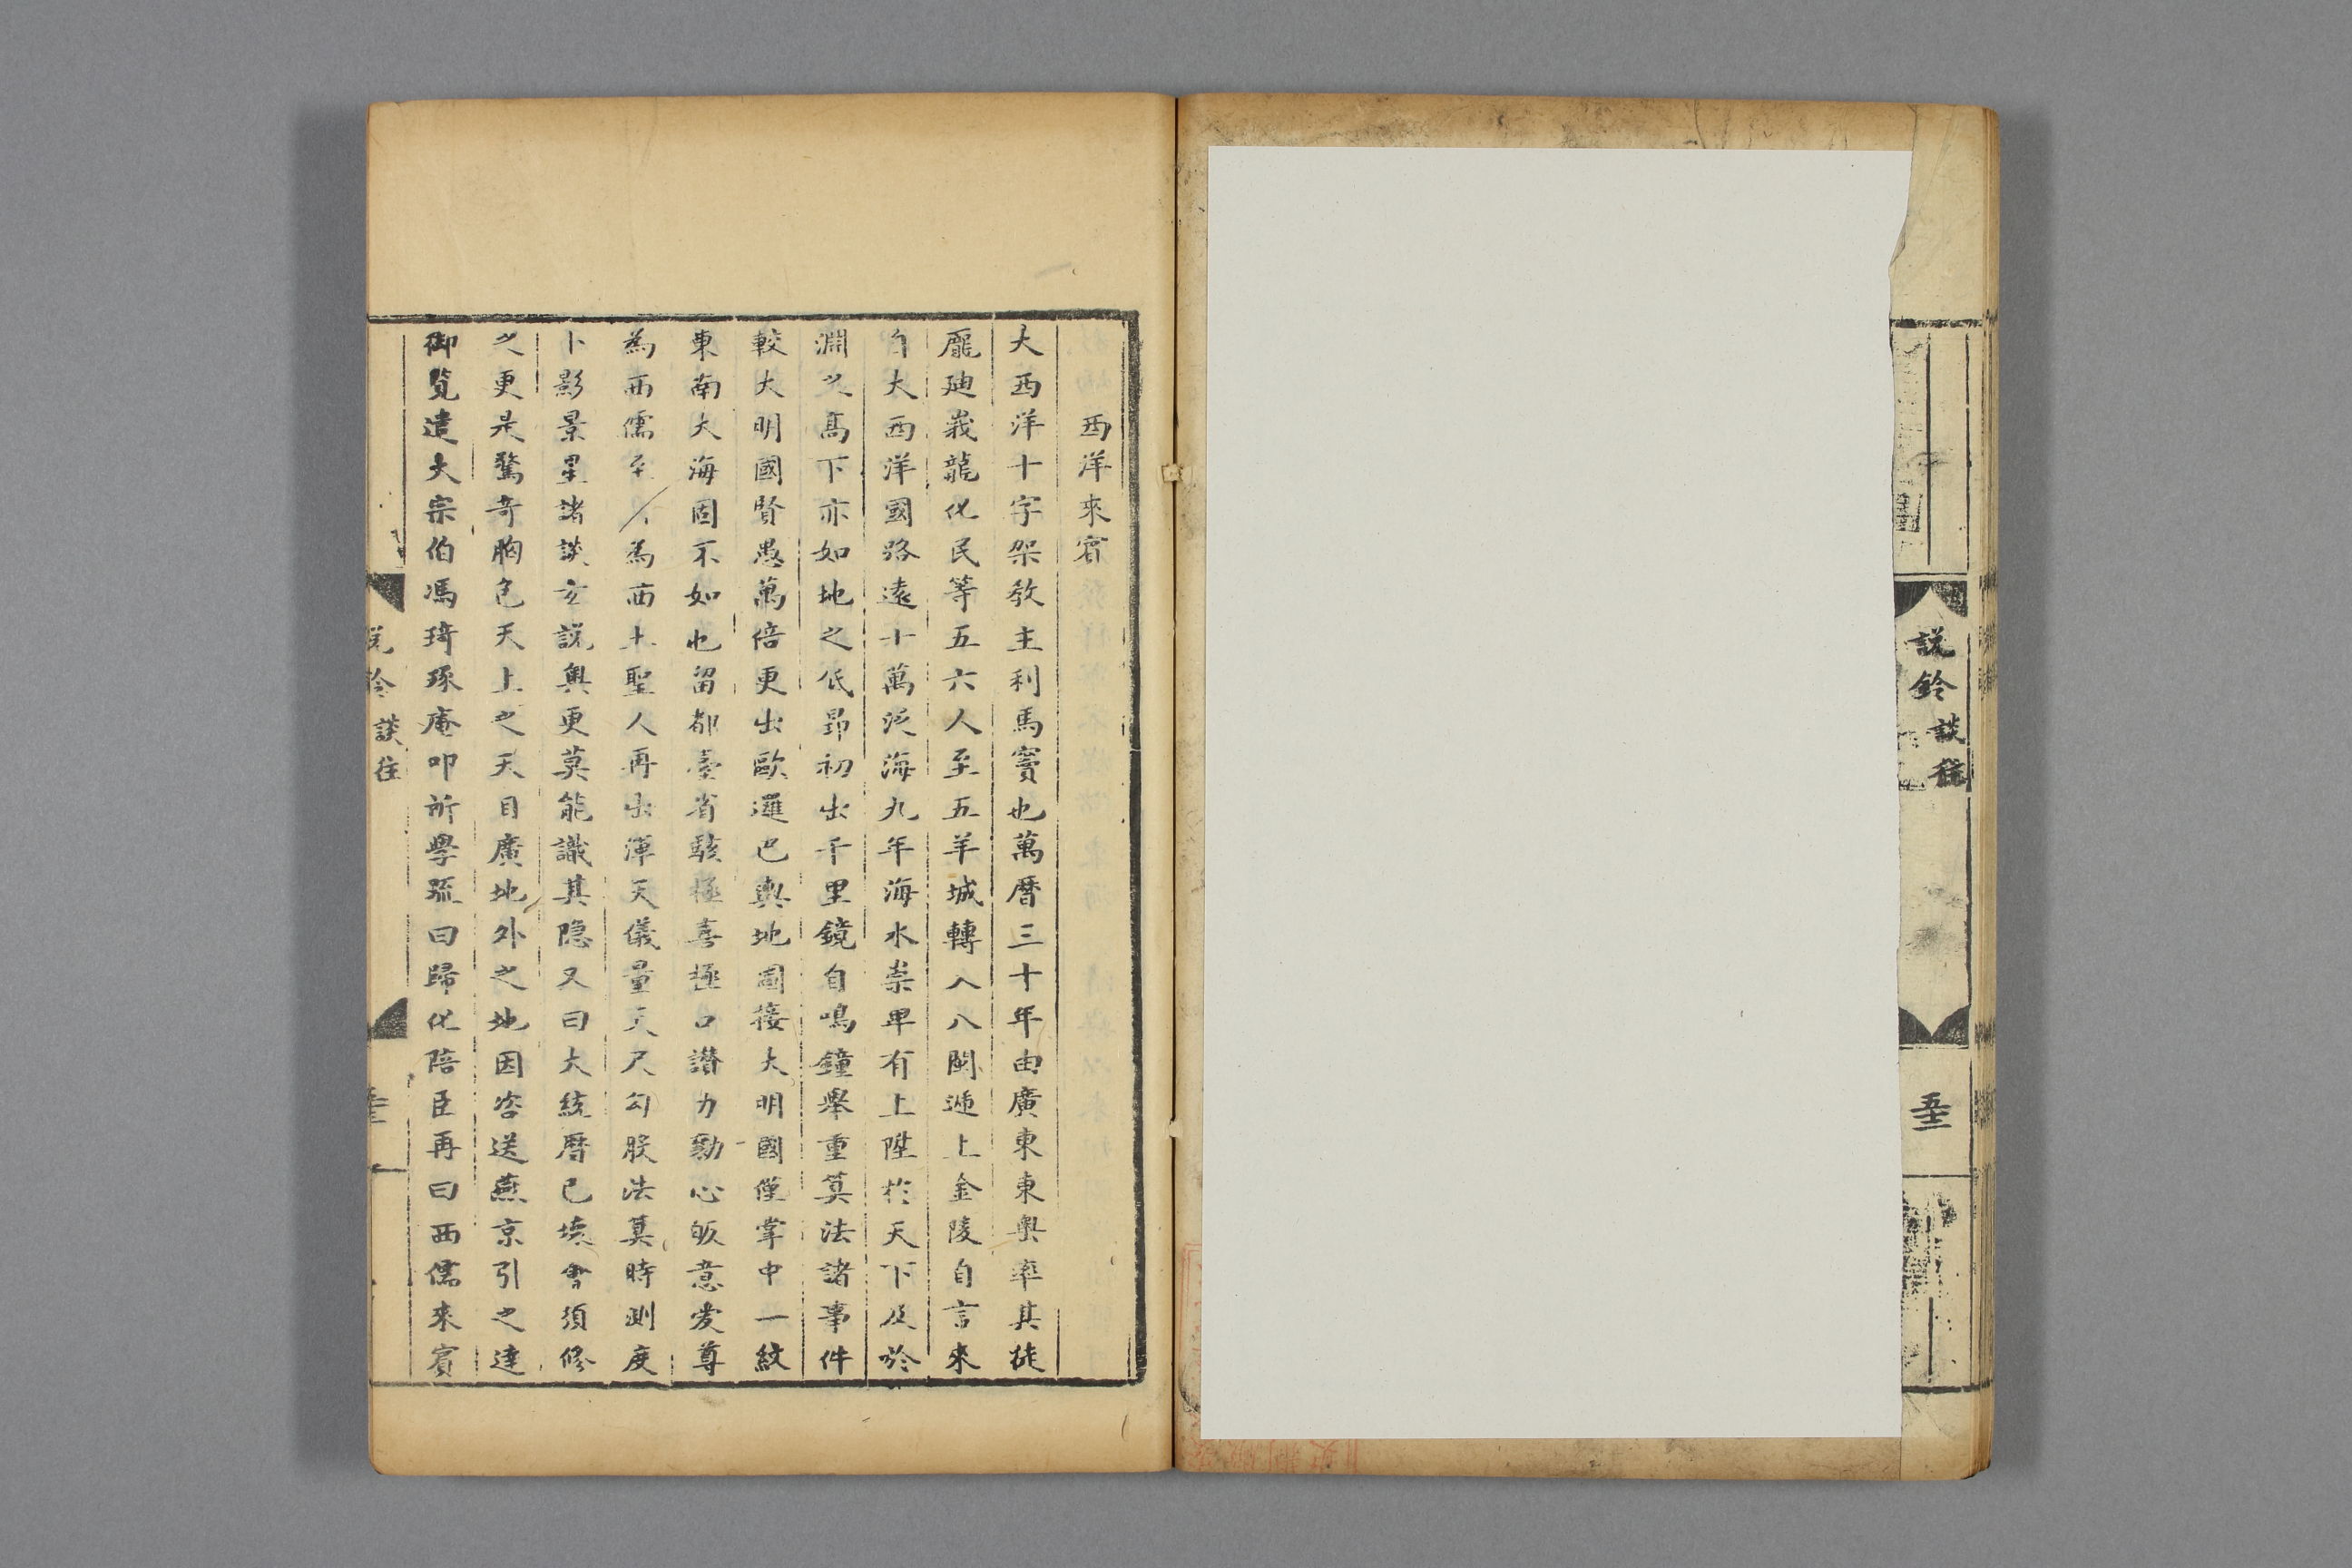 說鈴
談往
西洋來賓
大西洋十字架教主利馬竇也萬曆三十年由廣東東粵率其徒
龐廸峩龍化民等五六人至五羊城轉入八閩遞上金陵自言來
自大西洋國路遠十萬泛海九年海水崇卑有上陞於天下及於
淵之高下亦如地之低昂初出千里鏡自鳴鐘舉重筭法諸事件
較大明國賢愚萬倍更出歐邏巴輿地圖接大明國僅掌中一紋
東南大海固不如也留都臺省駭極喜極口讚力勷心皈意爰尊
為西儒至 為西土聖人再出渾天儀量天尺勾股法筭時測度
卜影景星諸談玄說奧更莫能識其隱又曰大統曆已壞會須修
之更是驚奇胸包天上之天目廣地外之地因咨送燕京引之達
御覧遣大宗伯馮琦琢庵叩所學疏曰歸化陪臣再曰西儒來賓
說鈴
談往